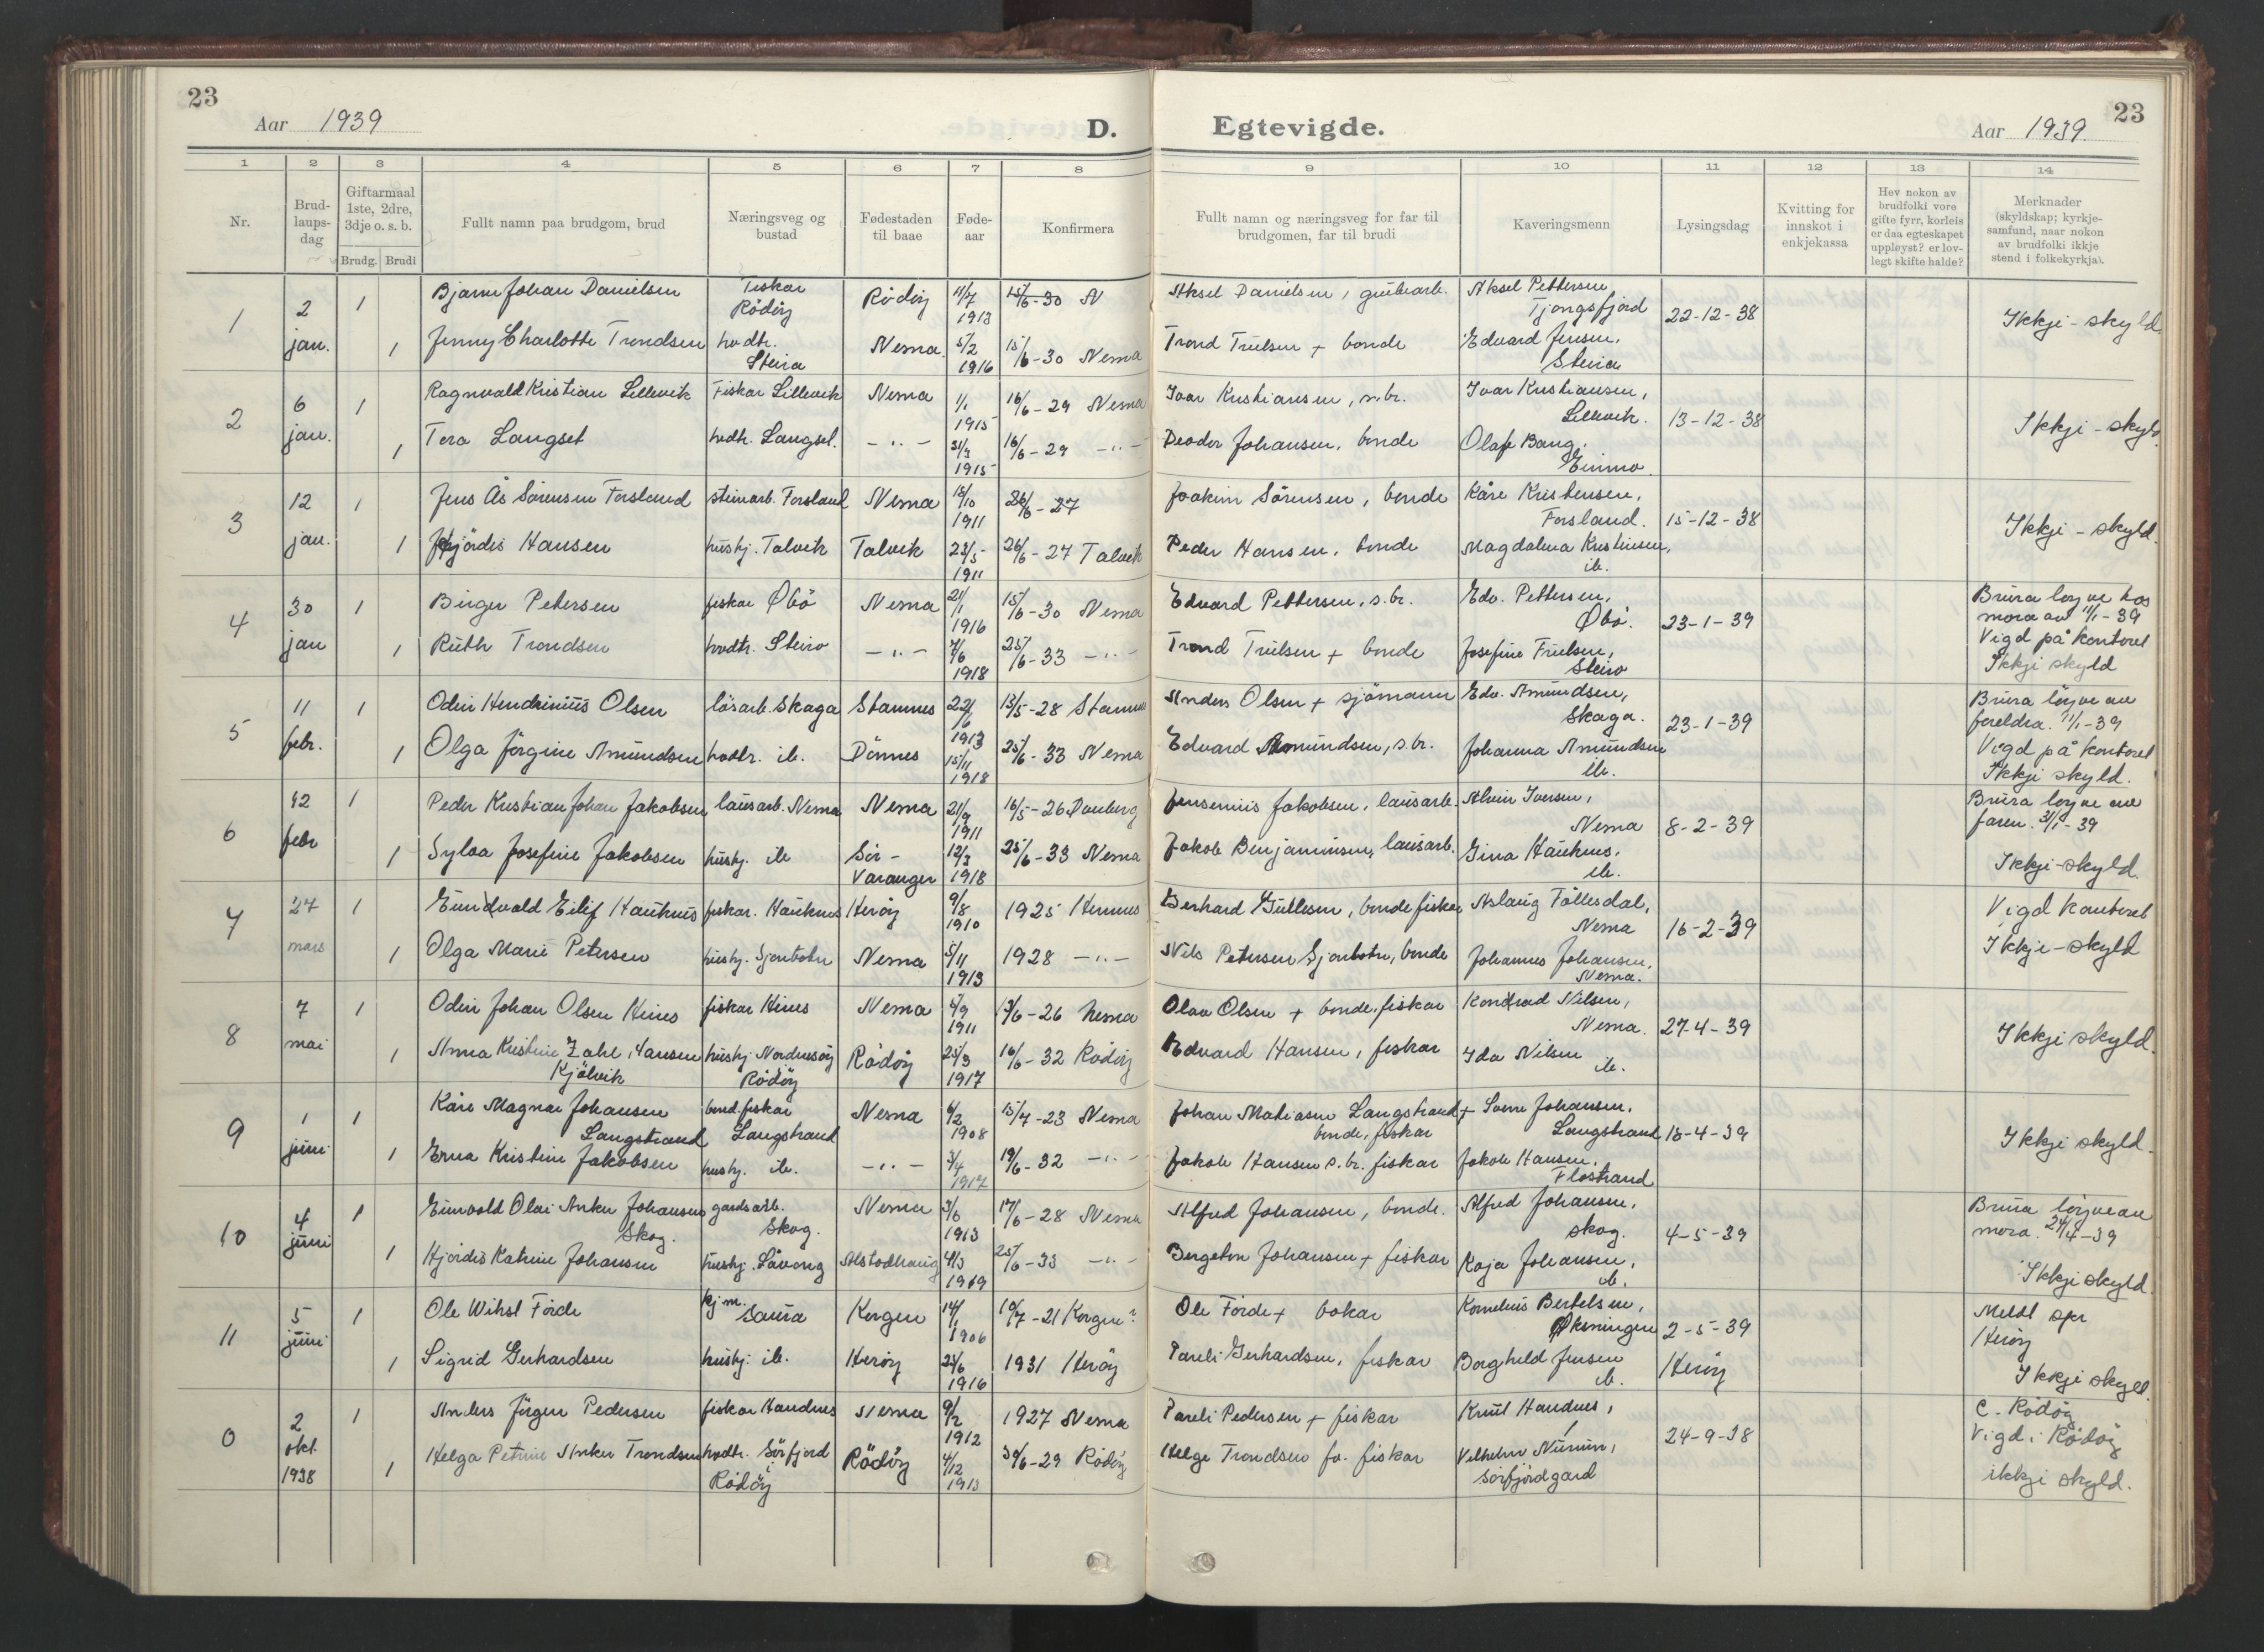 23
Aar 1939
D.
Egtevigde.
Aar 1939.
23
1 2 3 4 5 6 7 8 9 10 11 12 13 14
Nr.
Brud-
laups-
dag
Giftarmaal
1ste, 2dre,
3dje o. s. b.
Brudg. Brudi
Fullt namn paa brudgom, brud
Næringsveg og
bustad
Fødestaden
til baae
Føde-
aar
Konfirmera
Fullt namn og næringsveg for far til
brudgomen, far til brudi
Kaveringsmenn
Lysingsdag
Kvitting for
innskot i
enkjekassa
Hev nokon av
brudfolki vore
gifte fyrr, korleis
er daa egteskapet
uppløyst? er lov-
legt skifte halde?
Merknader
(skyldskap; kyrkje-
samfund, naar nokon
av brudfolki ikkje
stend i folkekyrkja).
1 2 jan. 1 Bjarne Johan Danielsen Fiskar Rödöy Rödöy 11/7 1913 15/6-30 N Aksel Danielsen, grubearb. Aksel Pettersen Tjongsfjord 22-12-38 Ikkji-skyld
1 Jenny Charlotte Trondsen hvdtr. Steiro Nesna 5/2 1916 15/6-30 Nesna Trond Trulsen + bonde Edvard Jensen, Steiro
2 6 jan. 1 Ragnvald Kristian Lillevik Fiskar Lillevik Nesna 1/1 1915 16/6-29 Nesna Ivar Kristiansen, s.br. Ivar Kristiansen, Lillevik. 13-12-38 Ikkji-skyld
1 Tora Langset hvdtr. Langset. -"- 31/3 1915 16/6-29 -"- Peoder Johansen, bonde Olaf Bang,
3 12 jan. 1 Jens Ås Sörensen Forsland steinarb. Forsland Nesna 18/10 1911 26/6-27 Joakim Sörensen, bonde Kåre Kristensen, Forsland. 15-12-38 Ikkji-skyld.
1 Hjördis Hansen hushj. Talvik Talvik 23/5 1911 26/6-27 Talvik Peder Hansen, bonde Magdalena Kristensen, ib.
4 30 jan 1 Birger Petersen fiskar Øbö Nesna 21/1 1916 15/6-30 Nesna Edvard Pettersen, s.br. Edv. Pettersen, Öbö. 23-1-39 Brura löyve hos
mora av 11/1-39
Vigd på kontoret
Ikkji skyld
1 Ruth Trondsen hvdtr. Steiro -"- 7/6 1918 25/6-33 -"- Trond Trulsen + bonde Josefine Trulsen, Steiro
5 11 febr. 1 Odin Hendrinius Olsen lösarb. Skaga Stamnes 22/6 1913 13/5-28 Stamnes Anders Olsen + sjömann Edv. Amundsen, Skaga. 23-1-39 Brura löyve av
foreldra. 11/1-39
Vigd på kontoret
Ikkji skyld.
1 Olga Jörgine Amundsen hvdtr. ib. Dönnes 15/11 1918 25/6-33 Nesna Edvard Amundsen, s.br. Johanna Amundsen ib.
6 12 febr 1 Peder Kristian Johan Jakobsen lausarb. Nesna Nesna 21/9 1911 16/5-26 Jensenius Jakobsen, lausarb. Alvin Iversen, Nesna 8-2-39 Brura löyve av
faren. 31/1-39
1 Sylva Josefine Jakobsen hushj. ib Sör-Varanger 12/3 1918 25/6-33 Nesna Jakob Benjaminsen, lausarb. Gina Hauknes, ib. Ikkji-skyld.
7 27 mars 1 Eindvald Eilif Hauknes fiskar. Hauknes Heröy 9/8 1910 1925 Hemnes Gerhard Gullesen, bonde fiskar Aslaug Töllesdal, Nesna 16-2-39 Vigd kontoret
1 Olga Marie Petersen hushj. Sjonbotn Nesna 5/11 1913 1928 -"- Nils Petersen Sjonbotn, bonde Johannes Johansen, Nesna. Ikkji-skyld
8 7 mai 1 Odin Johan Olsen Hines fiskar Hines Nesna 4/9 1911 13/6-26 Nesna Olav Olsen + bonde, fiskar Kondrad Nilsen, Nesna. 27-4-39 Ikkji skyld.
1 Anna Kristine Zahl Hansen Kjölvik hushj. Nordnesöy Rödöy Rödöy 25/3 1917 16/6-32 Rödöy Edvard Hansen, fiskar Ida Nilsen ib.
9 1 juni 1 Kåre Magnar Johansen Langstrand bond. fiskar Langstrand Nesna 6/2 1908 15/7-23 Nesna Johan Matiasen Langstrand + bonde, fiskar Sverre Johansen, Langstrand 18-4-39 Ikkji skyld.
1 Erna Kristine Jakobsen hushj. ib. -"- 3/4 1917 19/6-32 -"- Jakob Hansen s.br. fiskar Jakob Hansen, Flostrand
10 4 juni 1 Einvald Olai Anker Johansen Skog. gardsarb. Skog. Nesna 3/6 1913 17/6-28 Nesna Alfred Johansen, bonde. Alfred Johansen, skog. 4-5-39 Brura löyve av
mora. 24/4-39
1 Hjördis Katrine Johansen hushj. Låvong Alstadhaug 4/3 1919 25/6-33 -"- Bergeton Johansen + fiskar Kaja Johansen, ib. Ikkji skyld.
11 5 juni 1 Ole Wihst Förde kjm. Saura Korgen 14/1 1906 10/7-21 Korgen? Ole Förde + bokar Kornelius Bertelsen, Økningen 2-5-39 Meldt spr
Heröy
1 Sigrid Gerhardsen hushj. ib. Heröy 25/6 1916 1931 Heröy Pareli Gerhardsen, fiskar Borghild Jensen ib. Heröy Ikkji skyld.
0 2 okt. 1938 1 Anders Jörgen Pedersen fiskar Handnes Nesna 9/2 1912 1927 Nesna Pareli Pedersen + fiskar Knut Handnes, 24-9-38 C. Rödöy
Vigd i Rödöy
1 Helga Petrine Anker Trondsen hvdtr. Sörfjord i Rödöy Rödöy 4/12 1913 30/6-29 Rödöy Helge Trondsen fv. fiskar Vilhelm Nunun, Sörfjordgard ikkji skyld.